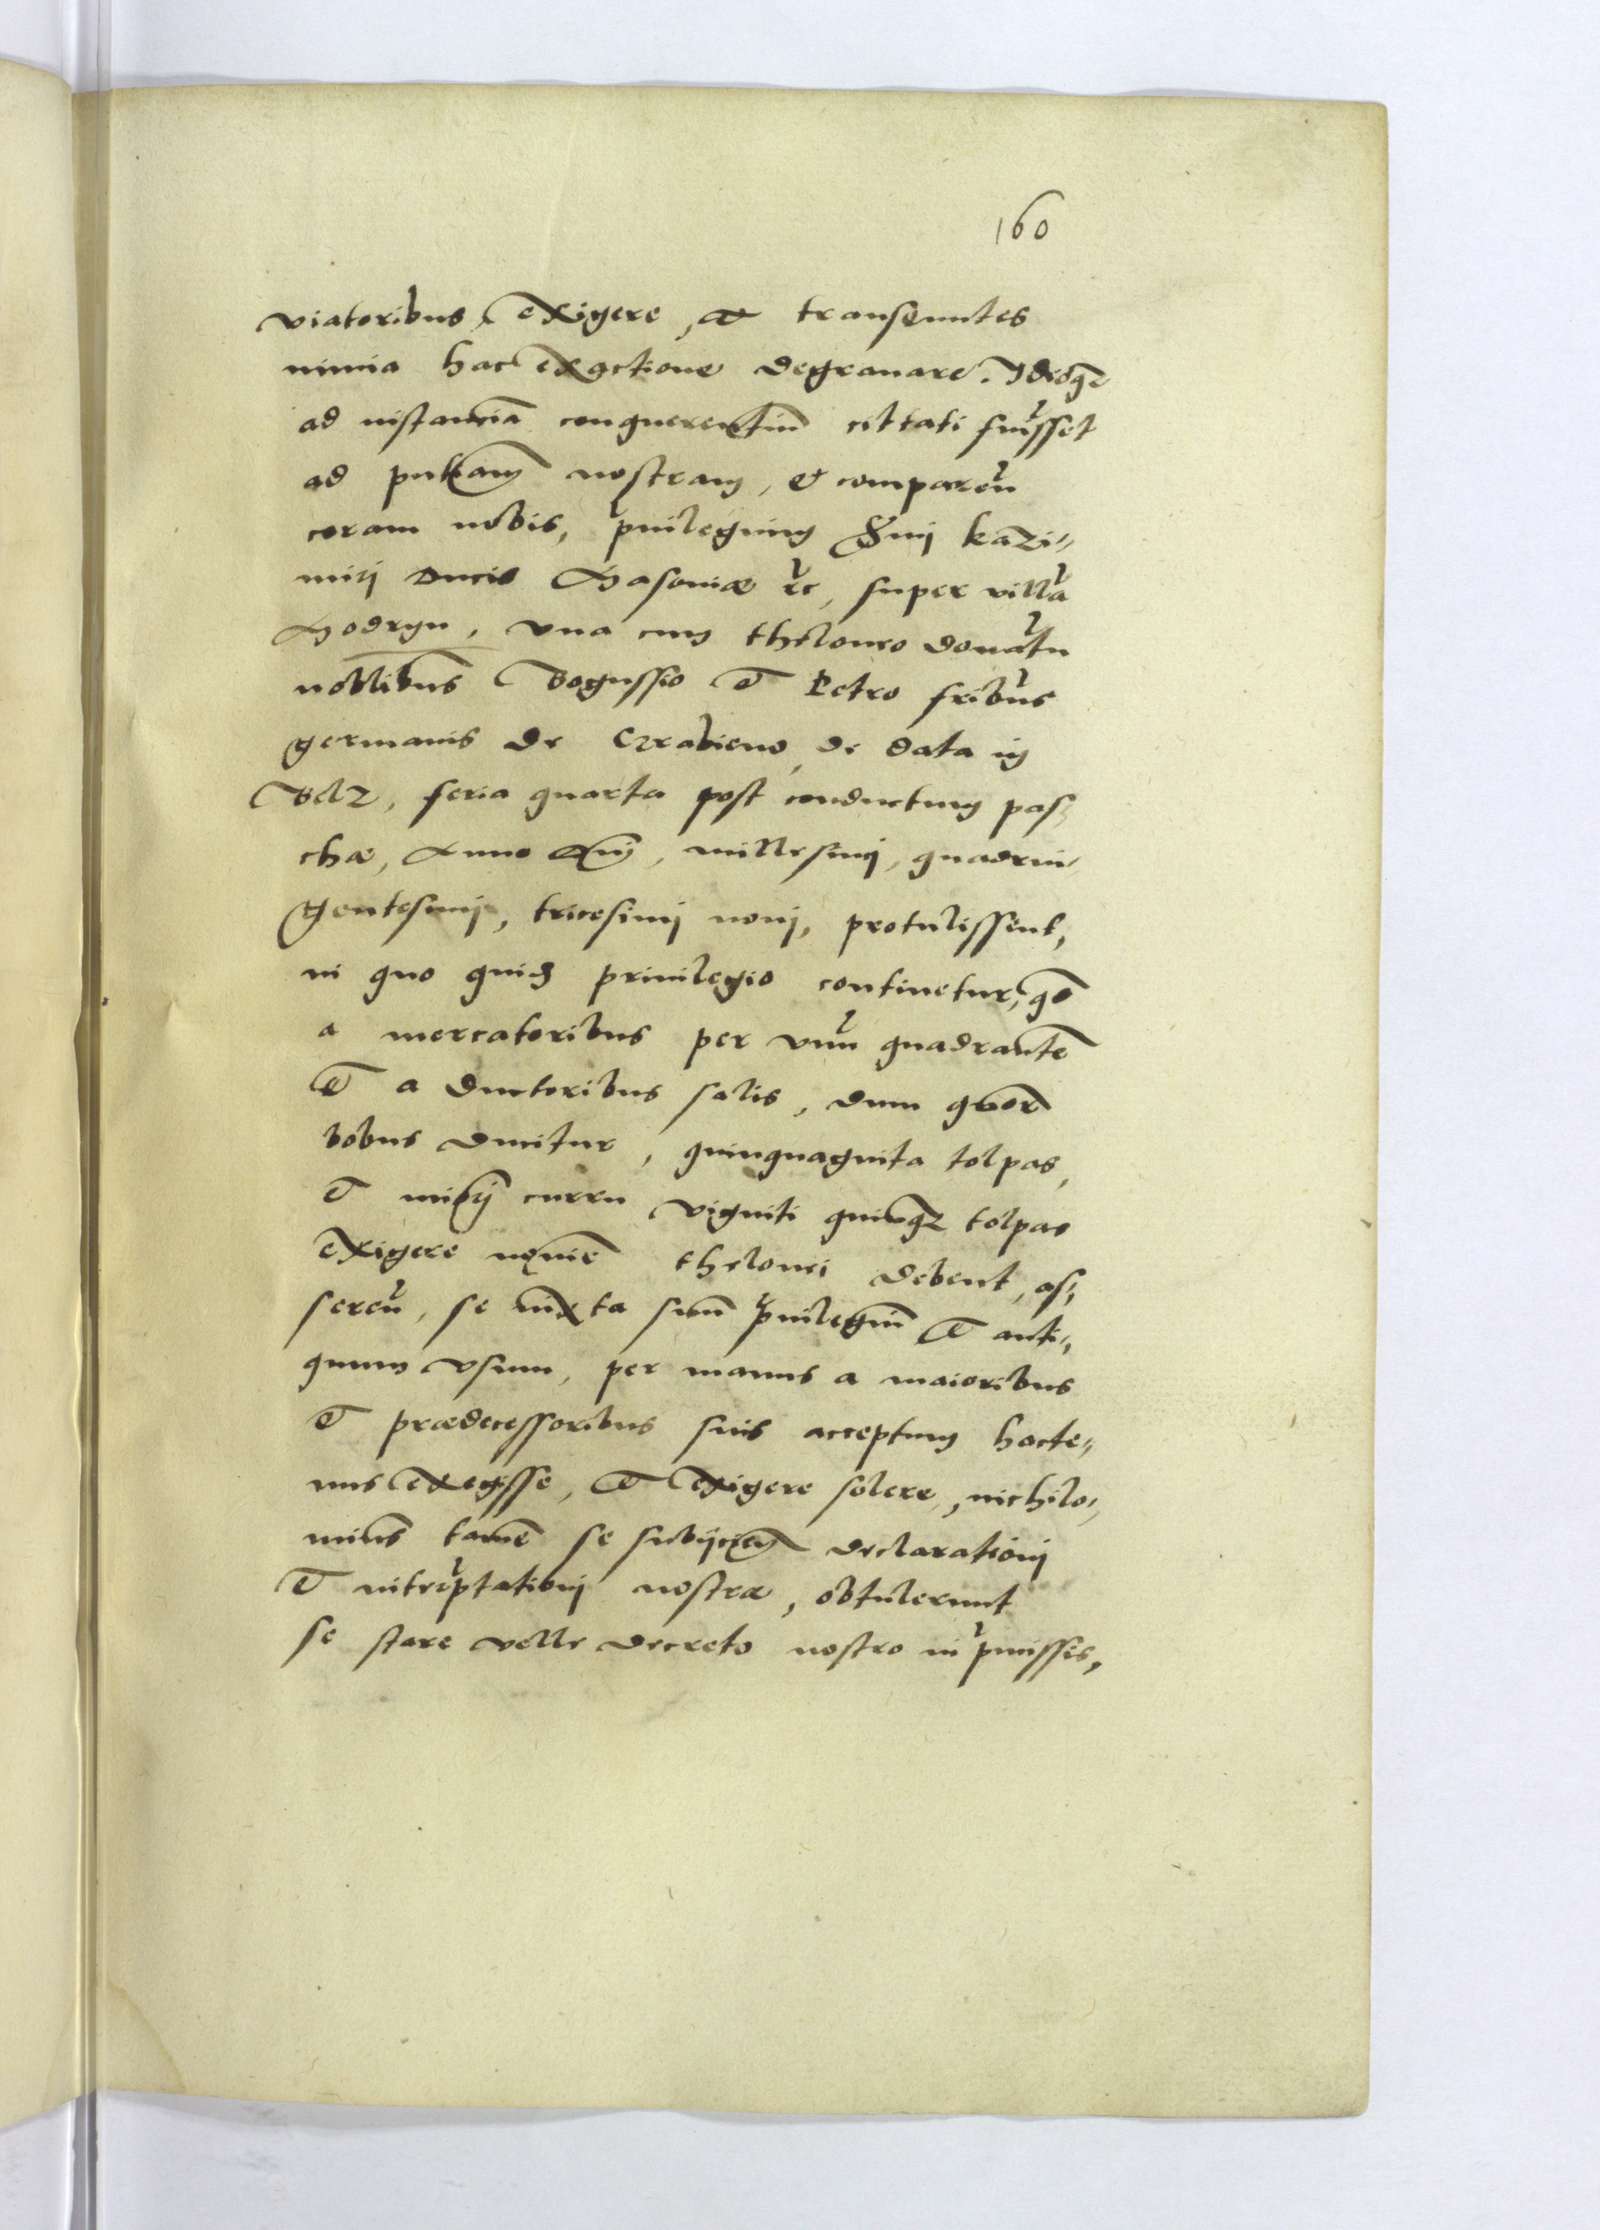 160
viatoribus exigere, et transeuntes
nimia hac exactione degrauare. Idcoqȝ
ad instanciā conquerentiū cittati fuissēt
ad pn̄ciam nostram, et comparēn
coram nobis, priuilegium Dnj kazi-
mirj Ducis Masoviæ etc, super villā
Modryn, vna cum theloneo donatū
nobilibus Bogussio et Petro fribus
germanis de Czrabieno, de data in
Belz, feria quarta post conductum pas-
chæ, Anno Dnj, millesimj, quadrin-
gentesimj, tricesimj nonj, protulissent,
in quo quidē priuilegio continetur, qd
a mercatoribus per vnū quadrantē
Et a ductoribus salis, dum quor
bobus ducitur, quinquaginta tolpas,
Et currū viginti quinqȝ tolpas
exigere noīe thelonei debent, as-
serēn, se iuxta suū priuilegiū et anti-
quum vsum, per manus a maioribus
Et prædecessoribus suis acceptum hacte-
nus exegisse, et exigere solere, nichilo-
minus tamē se subijcien declarationj
Et interpretationj nostræ, obtulerunt
se stare velle decreto nostro in pmissis,